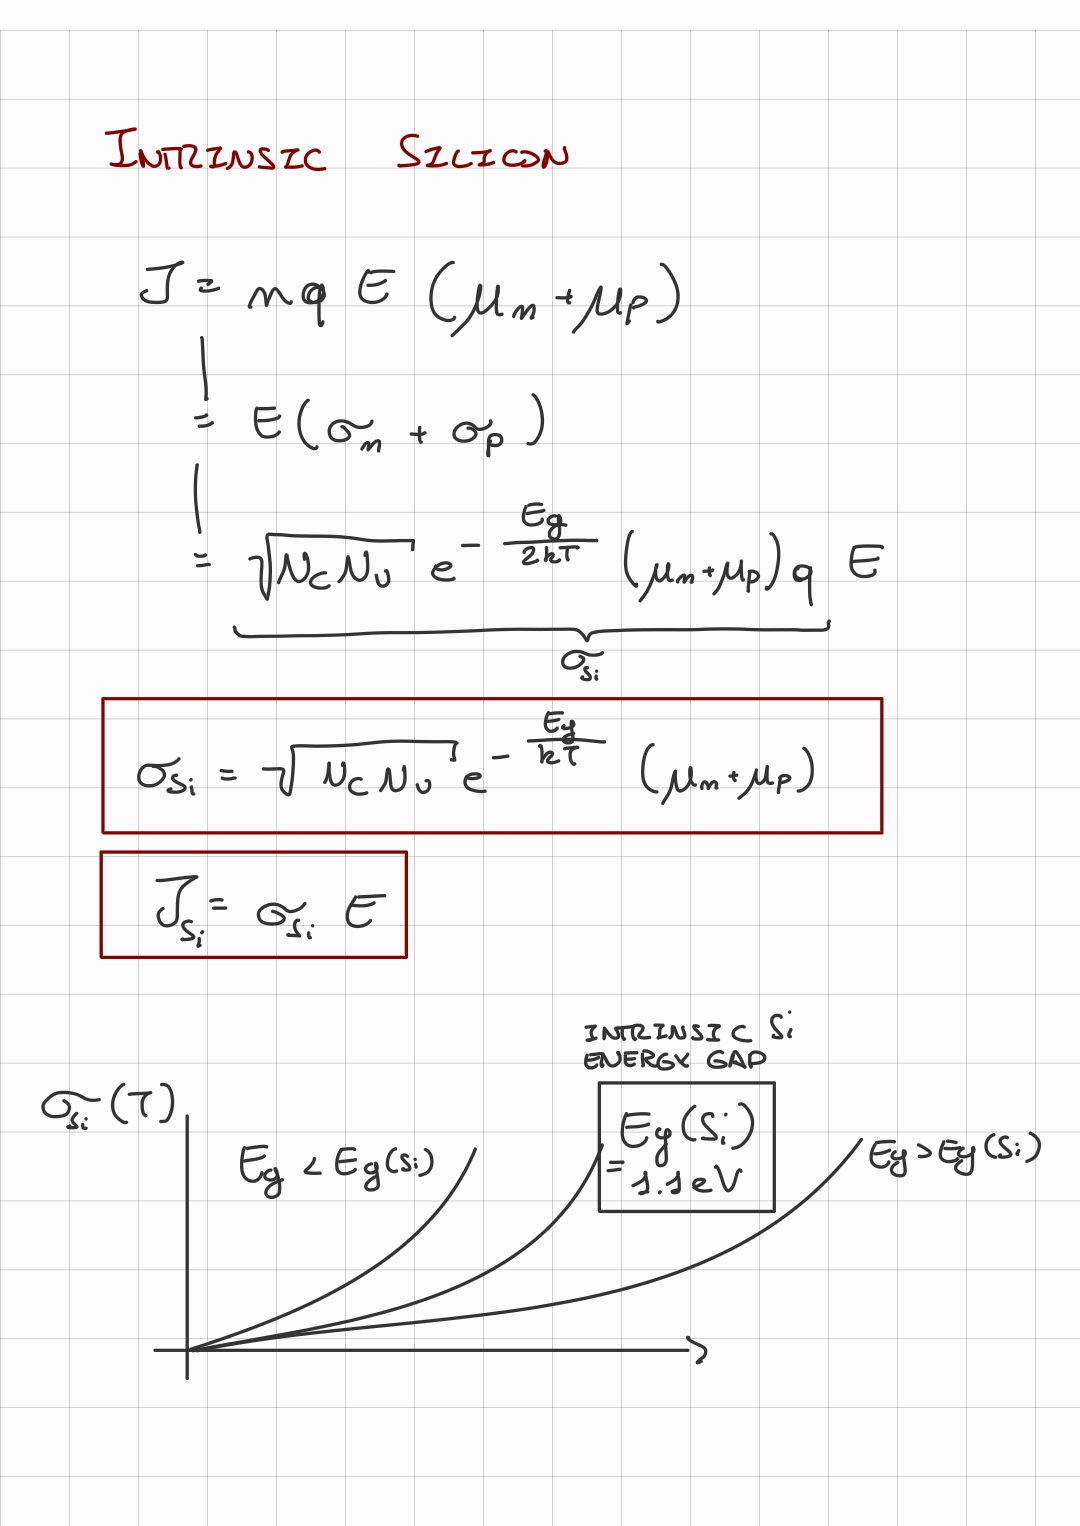 INTRINSIC SILICON
J = nq E (μn + μp)
= E(σn + σp)
= √NcNv e^-Eg/2kT (μn+μp)q E
σSi
σSi = √NcNv e^-Eg/kT (μn+μp)
JSi = σSi E
INTRINSIC Si
ENERGY GAP
σSi(T)
Eg < Eg(Si)
Eg(Si)
= 1.1eV
Eg > Eg(Si)